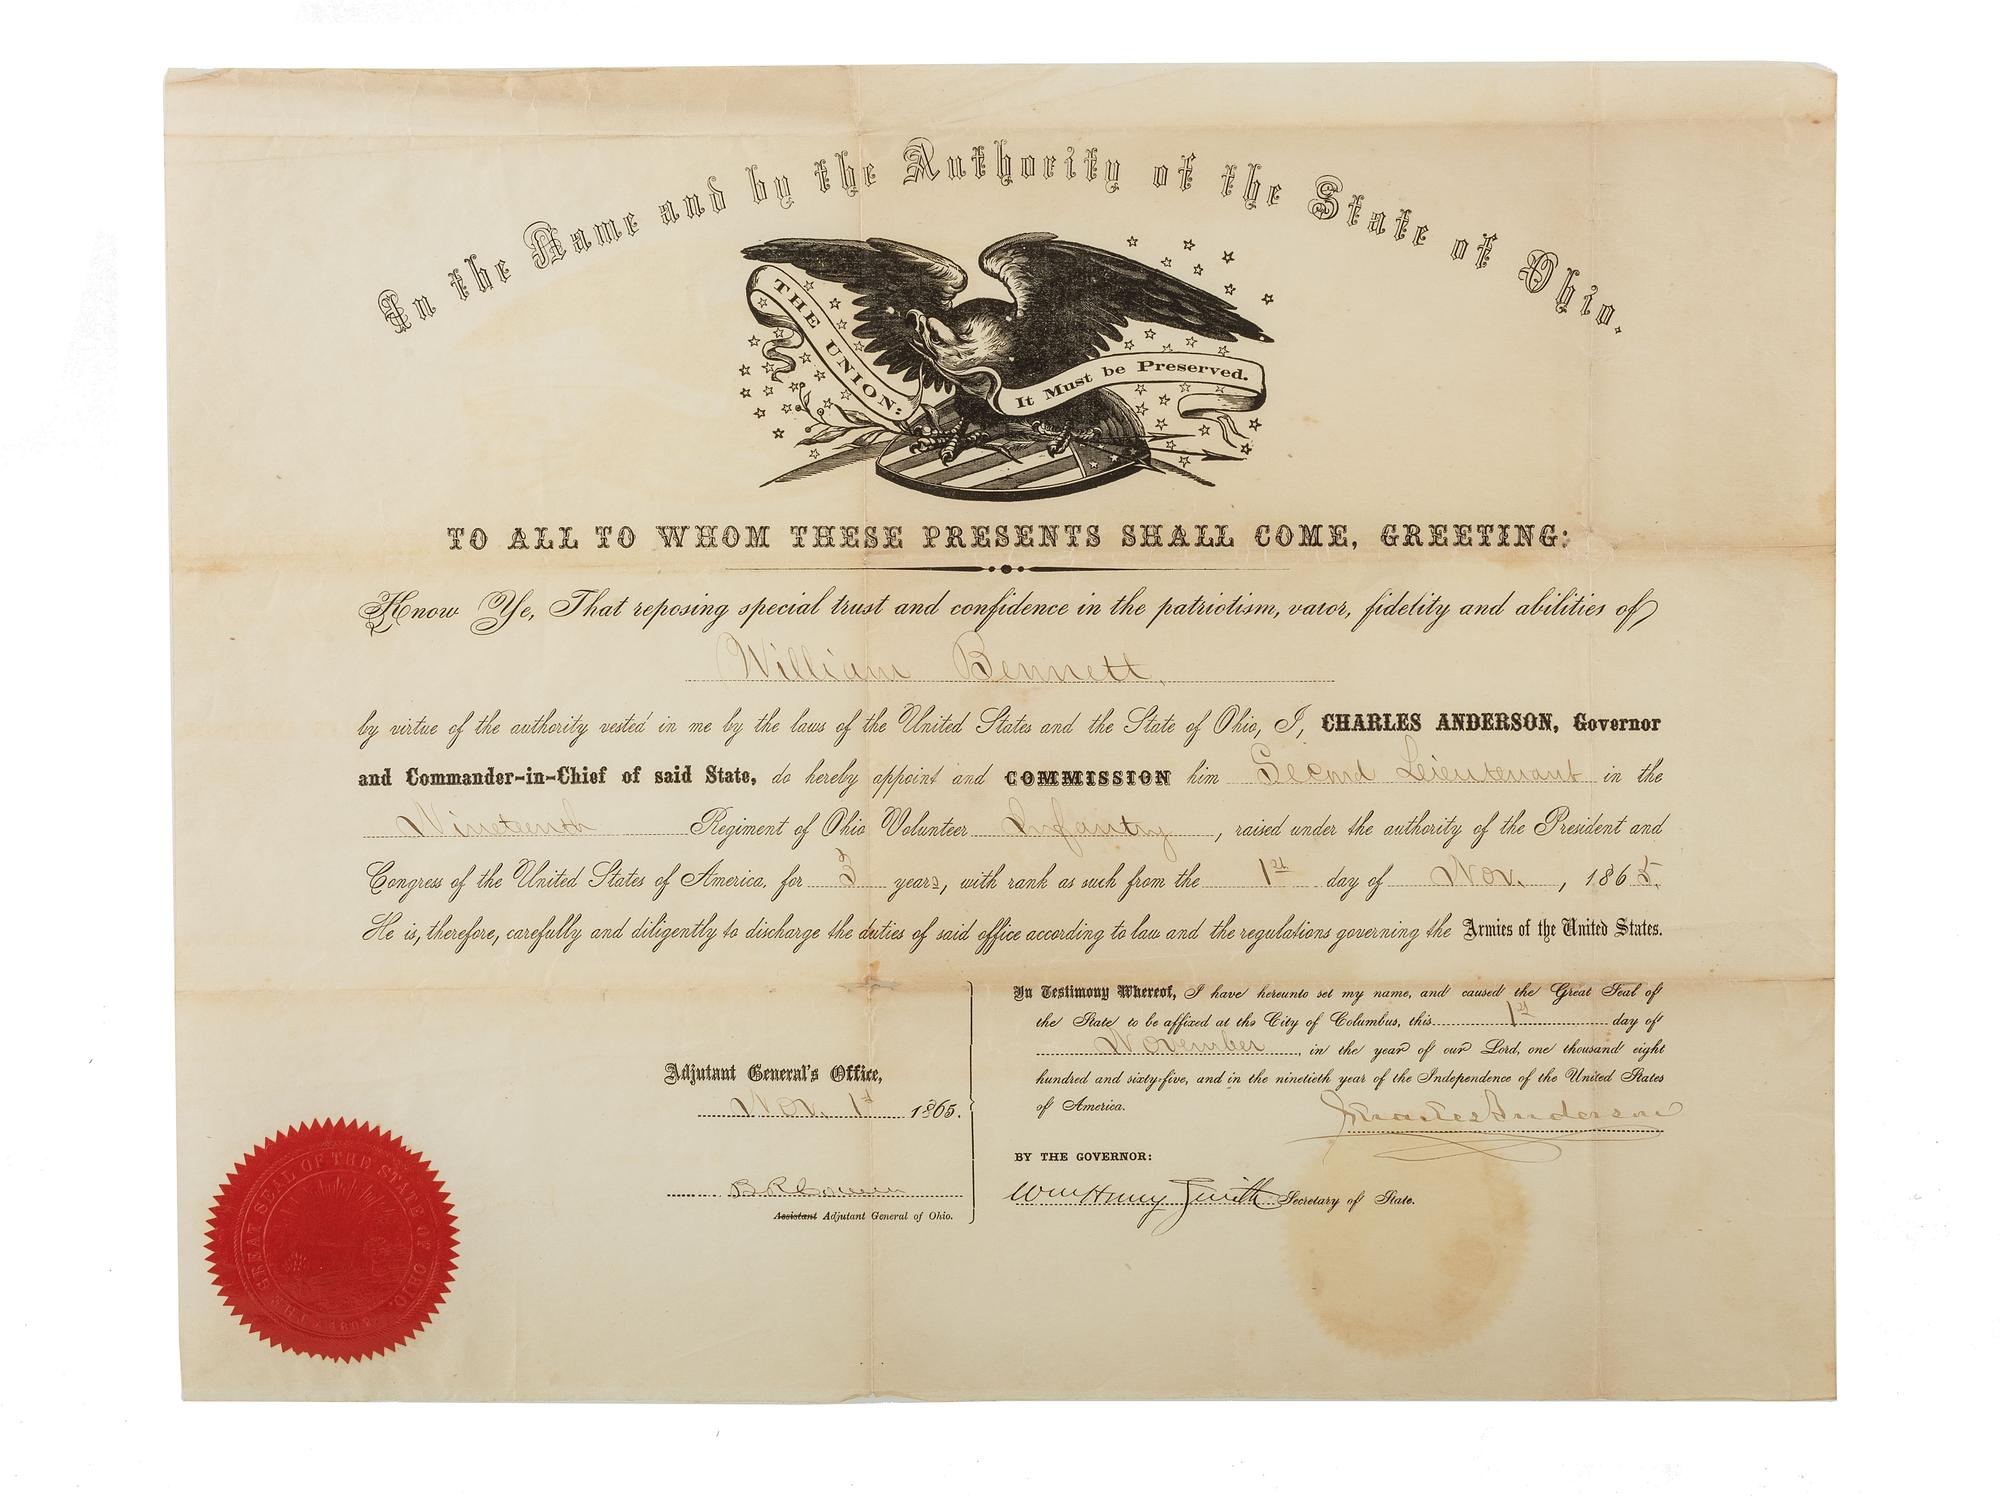 In the Name and by the Authority of the State of Ohio.
THE UNION:
It Must be Preserved.
TO ALL TO WHOM THESE PRESENTS SHALL COME, GREETING:
Know Ye, That reposing special trust and confidence in the patriotism, valor, fidelity and abilities of
William Bennett,
by virtue of the authority vested in me by the laws of the United States and the State of Ohio, I, CHARLES ANDERSON, Governor
and Commander-in-Chief of said State, do hereby appoint and COMMISSION him Second Lieutenant in the
Nineteenth Regiment of Ohio Volunteer Infantry, raised under the authority of the President and
Congress of the United States of America, for 3 years, with rank as such from the 1st day of Nov., 1865.
He is, therefore, carefully and diligently to discharge the duties of said office according to law and the regulations governing the Armies of the United States.
Adjutant General's Office,
Nov. 1st 1865.
B R Cowen
Assistant Adjutant General of Ohio.
In Testimony Whereof, I have hereunto set my name, and caused the Great Seal of
the State to be affixed at the City of Columbus, this 1st day of
November, in the year of our Lord, one thousand eight
hundred and sixty-five, and in the ninetieth year of the Independence of the United States
of America.
Charles Anderson
BY THE GOVERNOR:
Wm Henry Smith Secretary of State.
THE GREAT SEAL OF THE STATE OF OHIO.
1802